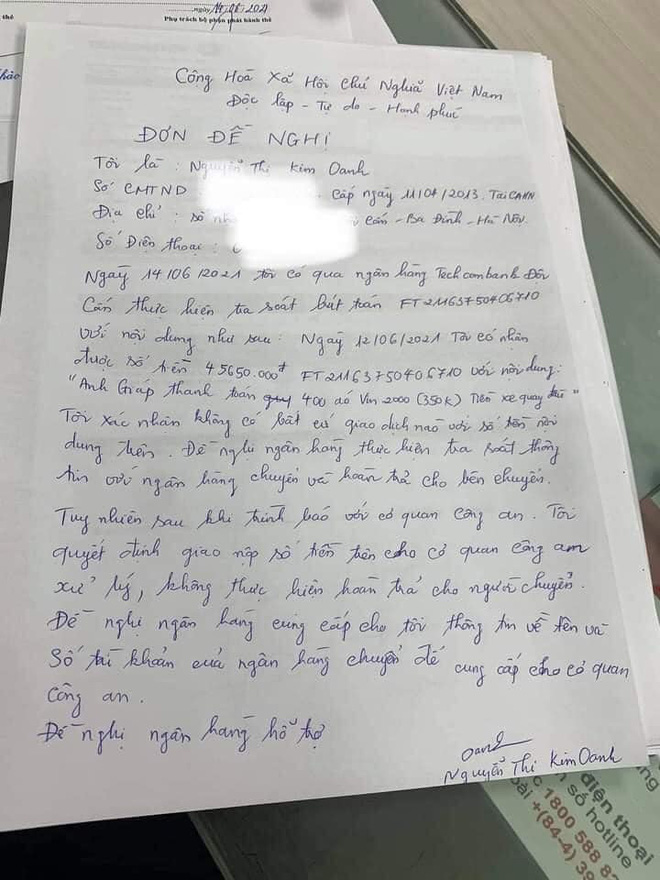 ngày 14/06/2021
Phụ trách bộ phận phát hành thẻ
Cộng Hoà Xã Hội Chủ Nghĩa Việt Nam
Độc lập - Tự do - Hạnh phúc
ĐƠN ĐỀ NGHỊ
Tôi là : Nguyễn Thị Kim Oanh
Số CMTND cấp ngày 11/04/2013. Tại CAHN
Địa chỉ : số Cấn - Ba Đình - Hà Nội.
Số Điện thoại :
Ngày 14/06/2021 tôi có qua ngân hàng Techcombank Đội
Cấn thực hiện tra soát bút toán FT21163750406710
với nội dung như sau: Ngày 12/06/2021 Tôi có nhận
được số tiền 45650.000đ FT21163750406710 với nội dung:
"Anh Giáp thanh toán 400 áo Vin 2000 (350k) Tiền xe quay đầu"
Tôi xác nhận không có bất cứ giao dịch nào với số tiền nội
dung trên. Đề nghị ngân hàng thực hiện tra soát thông
tin với ngân hàng chuyển và hoàn trả cho bên chuyển.
Tuy nhiên sau khi trình báo với cơ quan công an. Tôi
quyết định giao nộp số tiền trên cho cơ quan công an
xử lý, không thực hiện hoàn trả cho người chuyển.
Đề nghị ngân hàng cung cấp cho tôi thông tin về tên và
Số tài khoản của ngân hàng chuyển để cung cấp cho cơ quan
công an.
Đề nghị ngân hàng hỗ trợ
Oanh
Nguyễn Thị Kim Oanh
điện thoại
số hotline
1800 588 82
+(84-4) 39